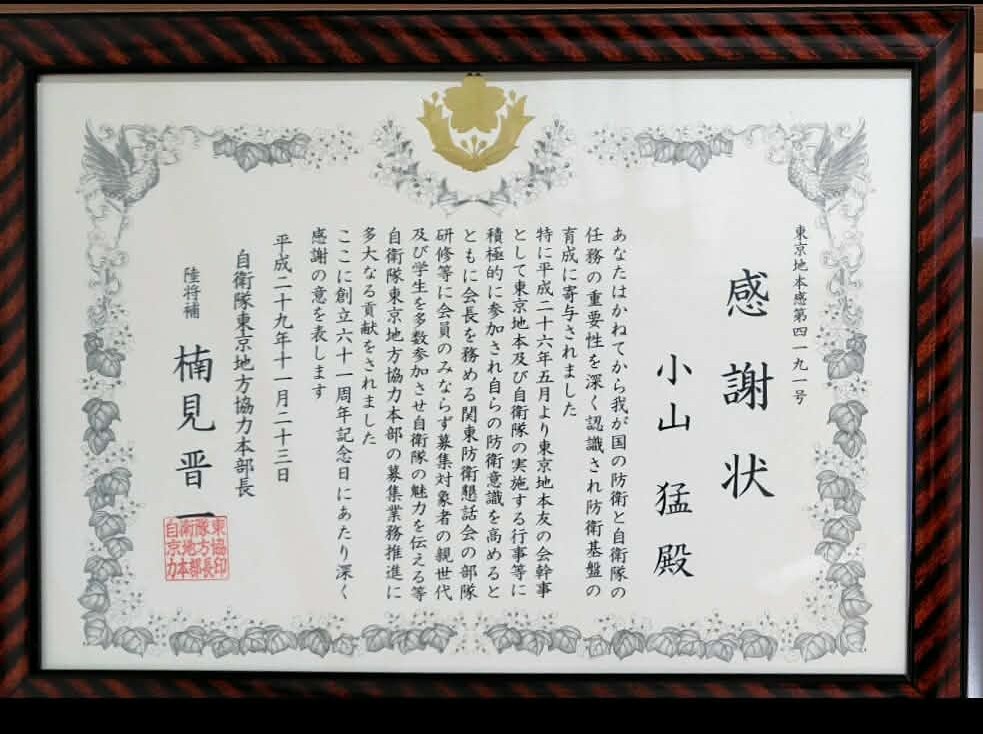 東京地本感第四一九一号
感謝状
小山猛殿
あなたはかねてから我が国の防衛と自衛隊の
任務の重要性を深く認識され防衛基盤の
育成に寄与されました
特に平成二十六年五月より東京地本友の会幹事
として東京地本及び自衛隊の実施する行事等に
積極的に参加され自らの防衛意識を高めると
ともに会長を務める関東防衛懇話会の部隊
研修等に会員のみならず募集対象者の親世代
及び学生を多数参加させ自衛隊の魅力を伝える等
自衛隊東京地方協力本部の募集業務推進に
多大なる貢献をされました
ここに創立六十一周年記念日にあたり深く
感謝の意を表します
平成二十九年十一月二十三日
自衛隊東京地方協力本部長
陸将補 楠見晋一
自衛隊東
京地方協
力本部長印